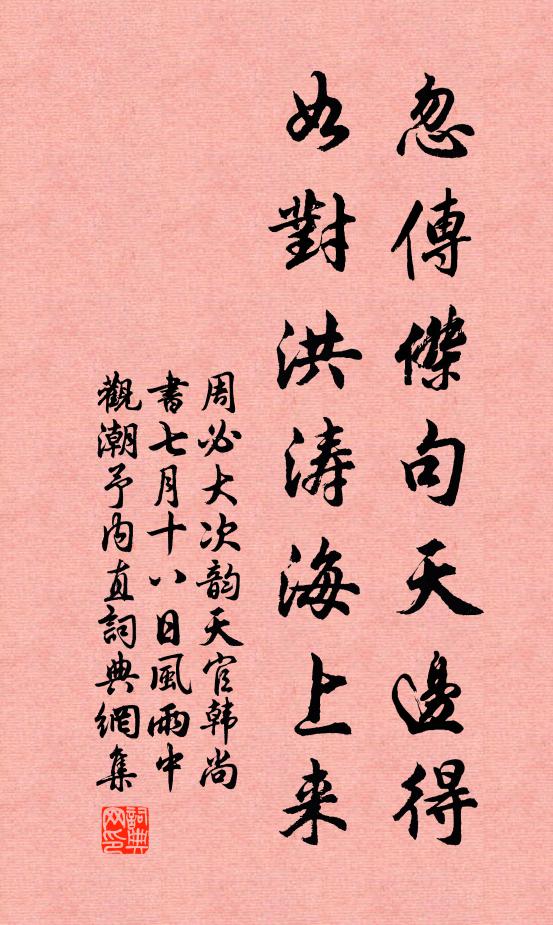 忽傳傑句天邊得
如對洪濤海上来
周必大次韵天官韩尚
書七月十八日風雨中
觀潮予内直詞典網集
詞典网印